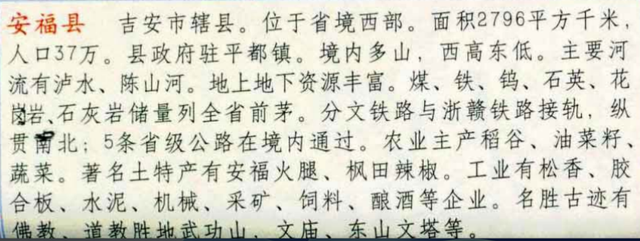 安福县 吉安市辖县。位于省境西部。面积2796平方千米，
人口37万。县政府驻平都镇。境内多山，西高东低。主要河
流有泸水、陈山河。地上地下资源丰富。煤、铁、钨、石英、花
岗岩、石灰岩储量列全省前茅。分文铁路与浙赣铁路接轨，纵
贯南北；5条省级公路在境内通过。农业主产稻谷、油菜籽、
蔬菜。著名土特产有安福火腿、枫田辣椒。工业有松香、胶
合板、水泥、机械、采矿、饲料、酿酒等企业。名胜古迹有
佛教、道教胜地武功山，文庙、东山文塔等。